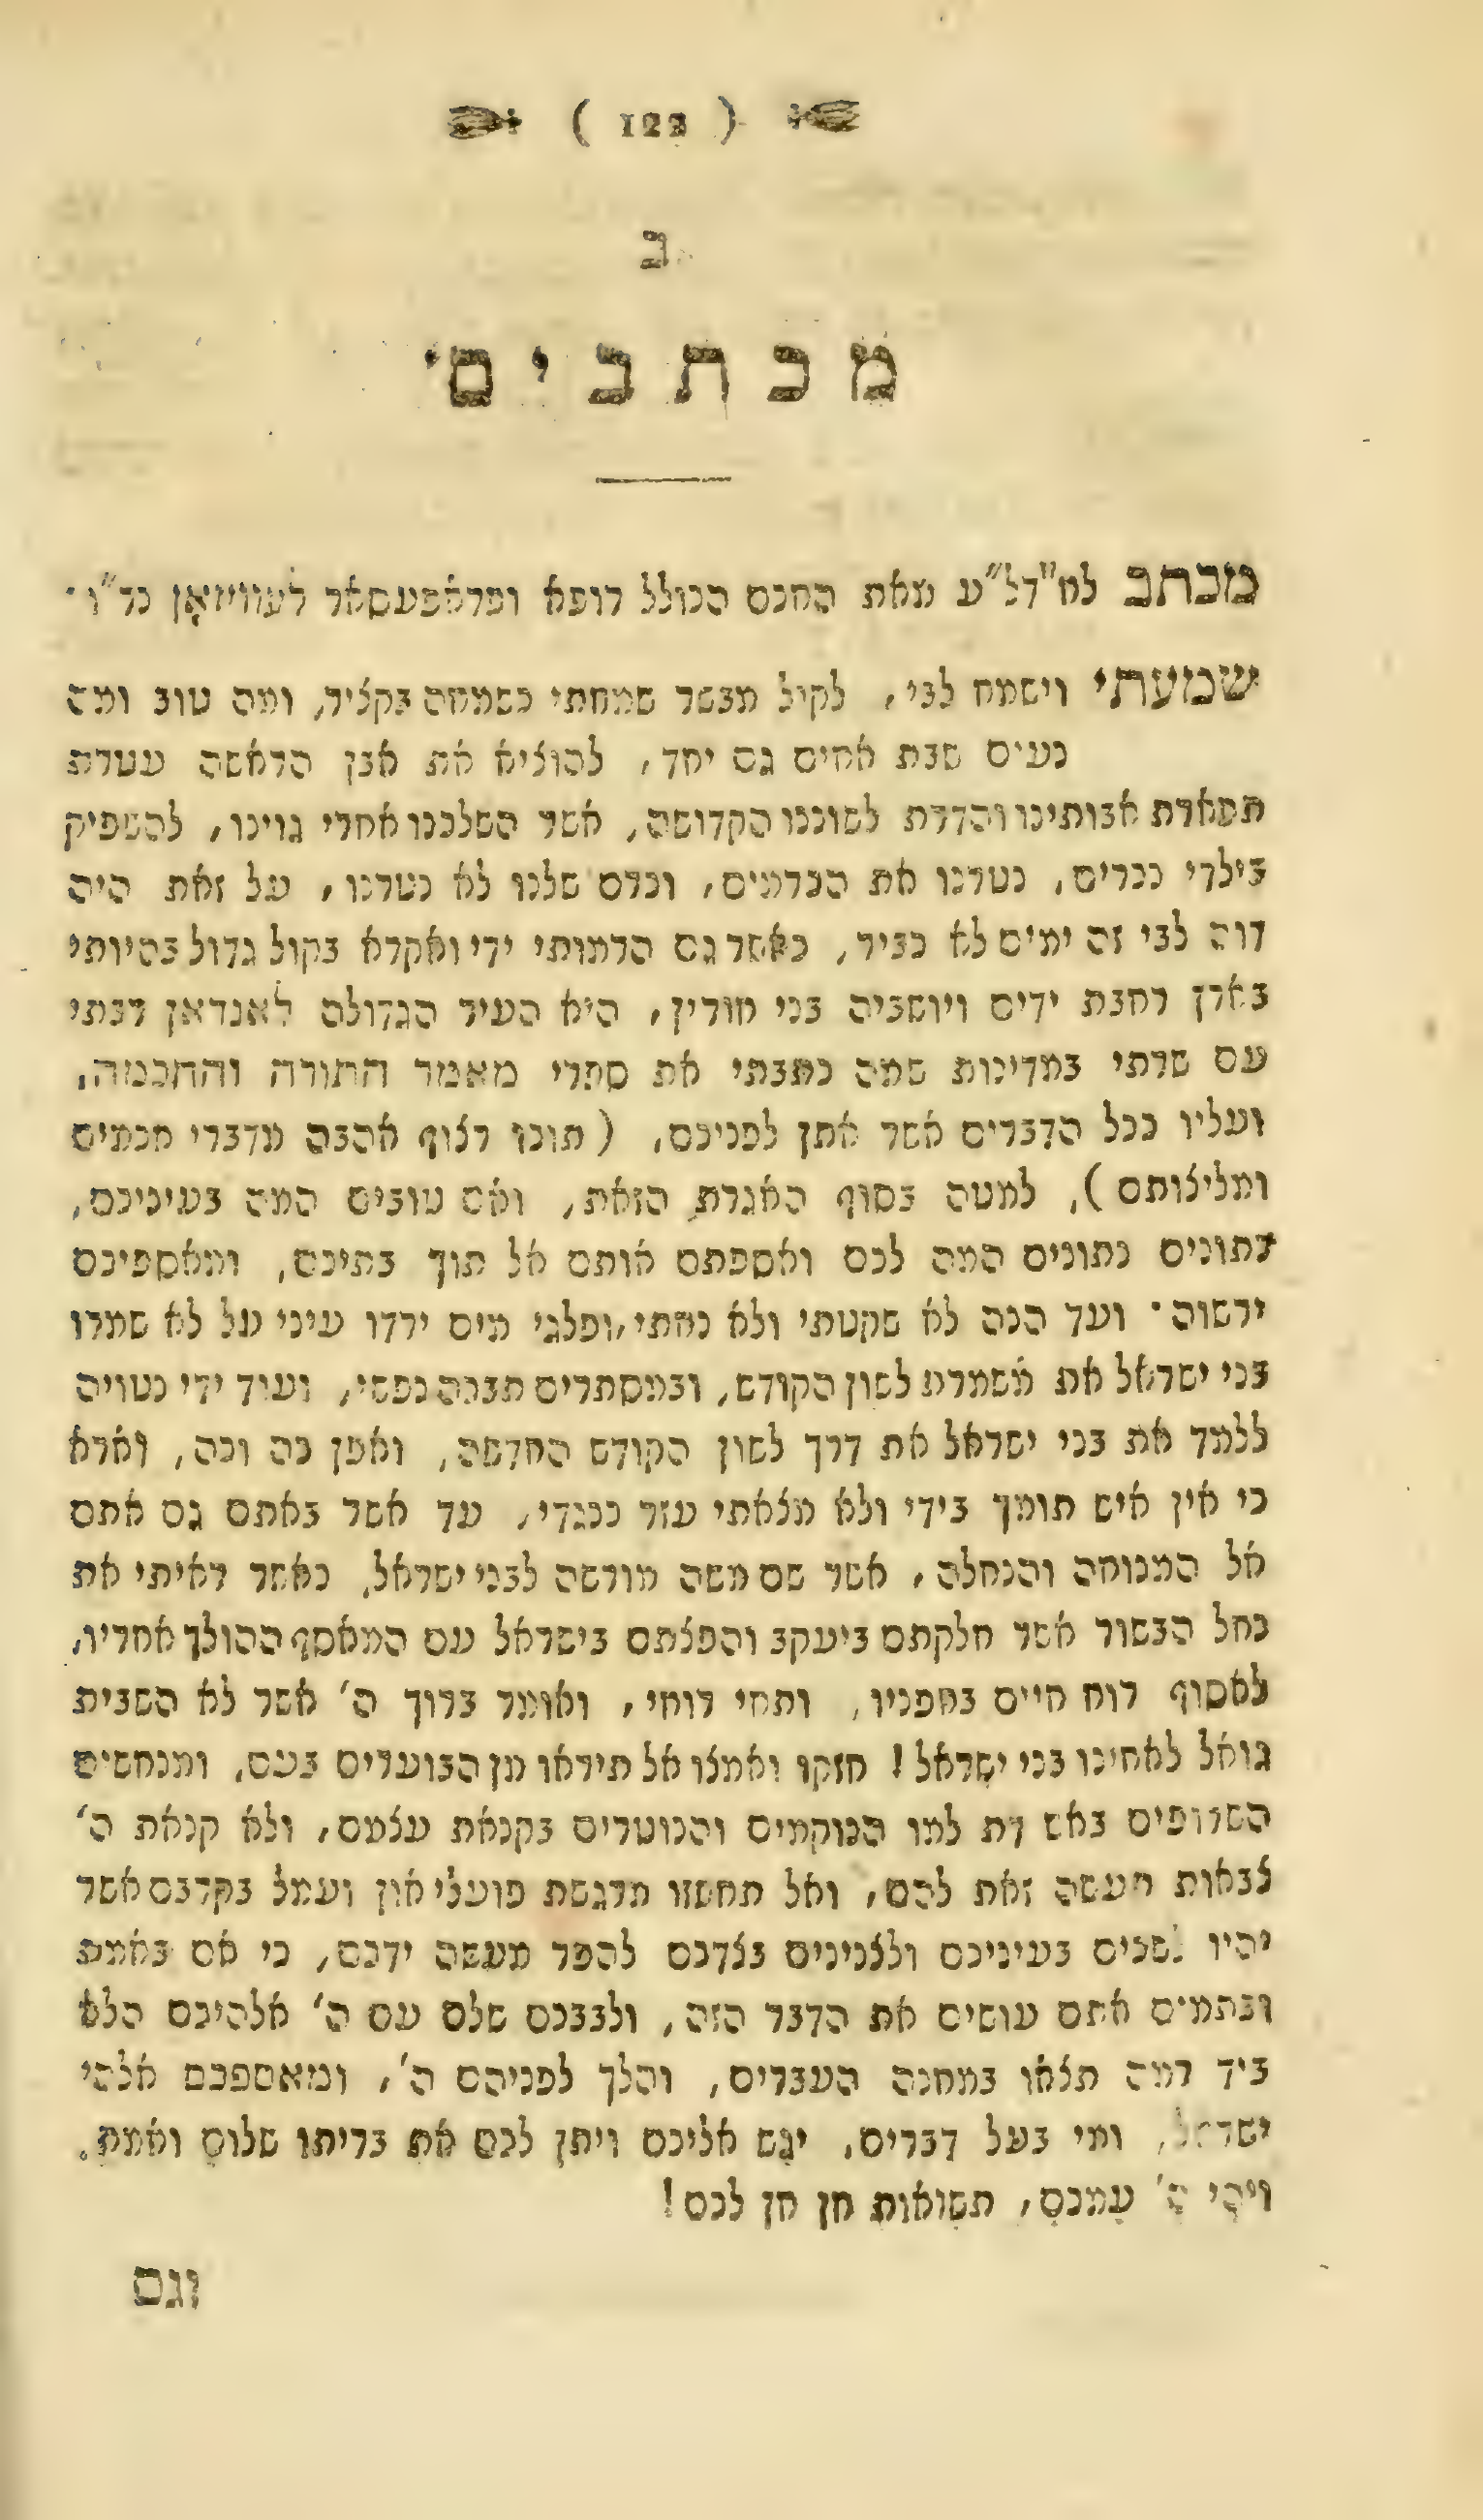 ( 122 )
ב
מכתבים
מכתב לח"דל"ע מאת החכם הכולל רופא ופראפעסאר לעוויזאָן נר"ו·
שמעתי וישמח לבי, לקול מבשר שמחתי כשמחה בקציר, ומה טוב ומה
נעים שבת אחים גם יחד, להוציא את אבן הראשה עטרת
תפארת אבותינו והדרת לשוננו הקדושה, אשר השלכנו אחרי גוינו, להשפיק
בילדי נכרים, נטרנו את הכרמים, וכרם שלנו לא נטרנו, על זאת היה
דוה לבי זה ימים לא כביר, כאשר גם הרמותי ידי ואקרא בקול גדול בהיותי
בארץ רחבת ידים ויושביה בני חורין, היא העיר הגדולה לאנדאן רבתי
עם שרתי במדינות שמה כתבתי את ספרי מאמר התורה והחכמה,
ועליו ככל הדברים אשר אתן לפניכם, (תוכו רצוף אהבה מדברי חכמים
ומליצותם), למטה בסוף האגרת הזאת, ואם טובים המה בעיניכם,
נתונים נתונים המה לכם ואספתם אותם אל תוך בתיכם, ומאספיכם
ירשוה· ועד הנה לא שקטתי ולא נחתי, ופלגי מים ירדו עיני על לא שמרו
בני ישראל את משמרת לשון הקודש, ובמסתרים תבכה נפשי, ועוד ידי נטויה
ללמד את בני ישראל את דרך לשון הקודש החדשה, ואפן כה וכה, וארא
כי אין איש תומך בידי ולא מצאתי עזר כנגדי, עד אשר באתם גם אתם
אל המנוחה והנחלה, אשר שם משה מורשה לבני ישראל, כאשר ראיתי את
נחל הבשור אשר חלקתם ביעקב והפצתם בישראל עם המאסף ההולך אחריו,
לאסוף רוח חיים בחפניו, ותחי רוחי, ואומר ברוך ה' אשר לא השבית
גואל לאחינו בני ישראל! חזקו ואמצו אל תיראו מן הבוערים בעם, ומנחשים
השרופים באש דת למו הנוקמים והנוטרים בקנאת עצמם, ולא קנאת ה'
צבאות תעשה זאת להם, ואל תחפזו מרגשת פועלי און ועמל בקרבם אשר
יהיו לשכים בעיניכם ולצנינים בצדכם להפר מעשה ידכם, כי אם באמת
ובתמים אתם עושים את הדבר הזה, ולבבכם שלם עם ה' אלהיכם הלא
ביד רמה תצאו במחנה העברים, והלך לפניהם ה', ומאספכם אלהי
ישראל, ומי בעל דברים, יגש אליכם ויתן לכם את בריתו שלום ואמת,
ויהי ה' עמכם, תשואות חן חן לכם!
וגם